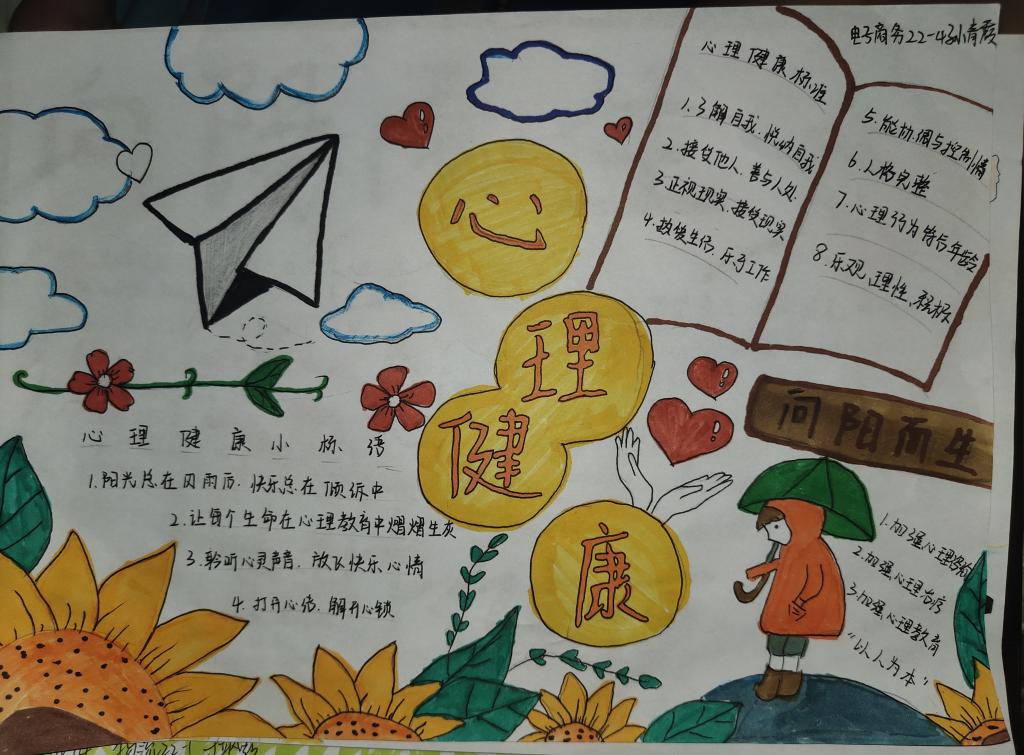 电子商务22-4孙青霞
心理健康标准
1.了解自我、悦纳自我
2.接受他人、善与人处
3.正视现实、接受现实
4.热爱生活、乐于工作
5.能协调与控制情
6.人格完整
7.心理行为符合年龄
8.乐观、理性、积极
心
理
健
康
向阳而生
心理健康小标语
1.阳光总在风雨后，快乐总在倾诉中
2.让每个生命在心理教育中熠熠生灰
3.聆听心灵声音，放飞快乐心情
4.打开心结，解开心锁
1.加强心理
2.加强心理治疗
3.加强心理教育
“以人为本”